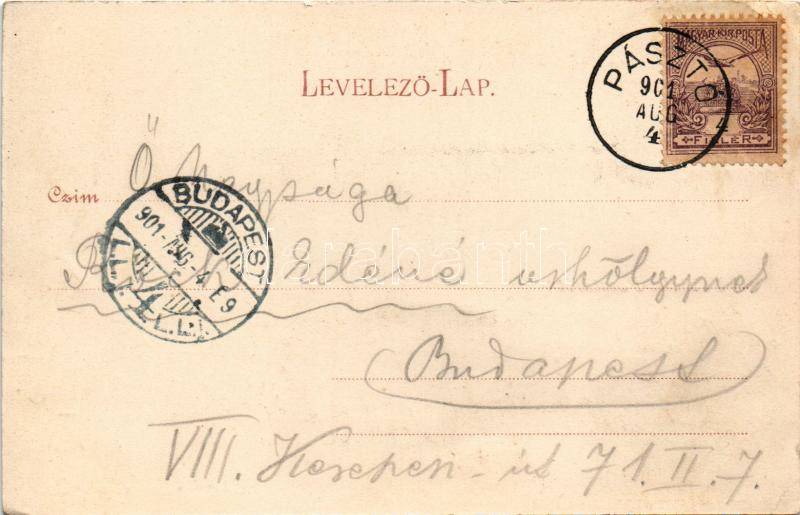 LEVELEZŐ-LAP.
MAGYAR KIR. POSTA
FILLÉR
PÁSZTÓ
901
AUG
4
Ő Nagysága
Czim
BUDAPEST
901-AUG.-4 E9
Edéné urhölgynek
darabanth
Budapest
VIII. Kerepesi-út 71. II. 7.